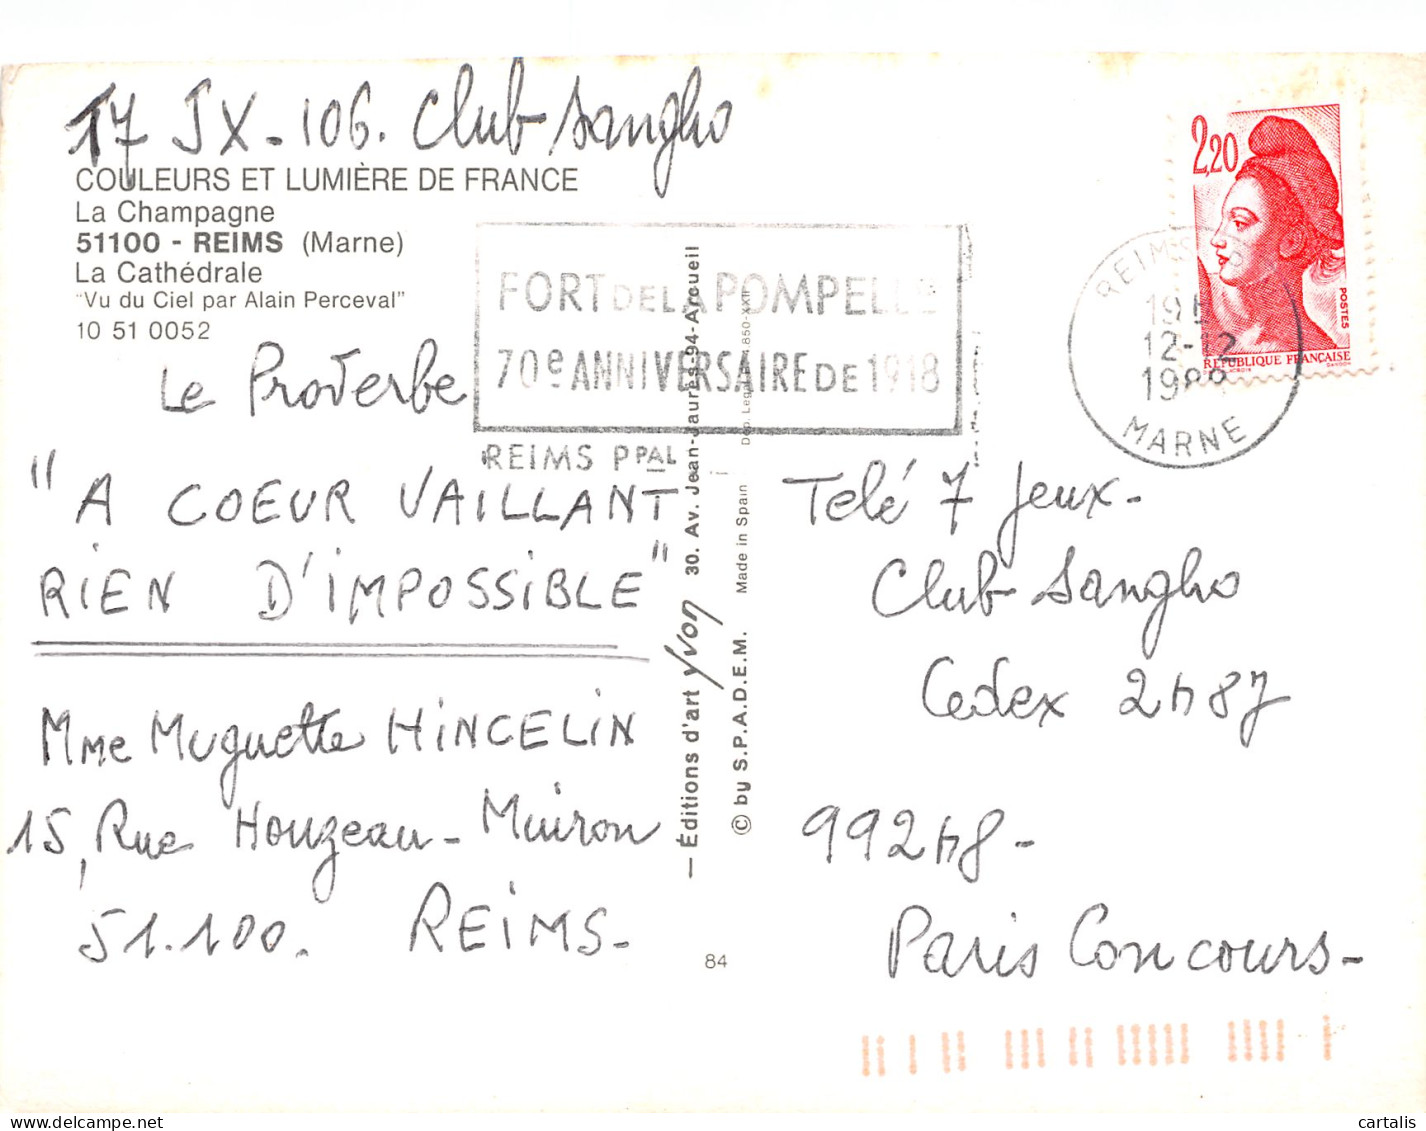 17 JX-106. Club Sangho
COULEURS ET LUMIÈRE DE FRANCE
La Champagne
51100 - REIMS (Marne)
La Cathédrale
"Vu du Ciel par Alain Perceval"
10 51 0052
Le Proverbe
"A COEUR VAILLANT
RIEN D'IMPOSSIBLE"
Mme Muguette HINCELIN
15, Rue Houzeau-Muiron
51.100. REIMS-
FORT DE LA POMPELLE
70e ANNIVERSAIRE DE 1918
REIMS PPAL
— Éditions d'art Yvon 30. Av. Jean-Jaurès-94-Arcueil
© by S.P.A.D.E.M. Made in Spain
84
2,20
POSTES
RÉPUBLIQUE FRANÇAISE
REIMS
12-12
MARNE
Télé 7 Jeux-
Club Sangho
Cedex 2487
99248-
Paris Concours-
cartalis
www.cartalis.com